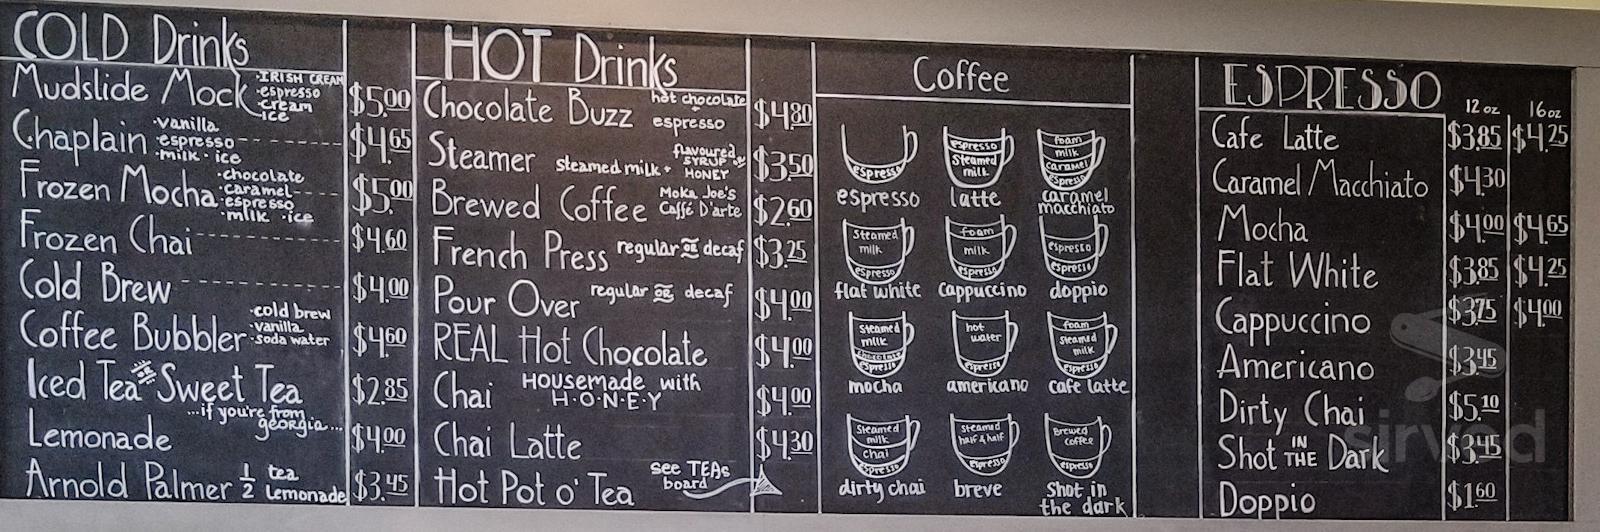 COLD Drinks
Mudslide Mock $5.00
·IRISH CREAM
·espresso
·cream
·ice
Chaplain $4.65
·vanilla
·espresso
·milk · ice
Frozen Mocha $5.00
·chocolate
·caramel
·espresso
·milk ·ice
Frozen Chai $4.60
Cold Brew $4.00
Coffee Bubbler $4.60
·cold brew
·vanilla
·soda water
Iced Tea OR Sweet Tea $2.85
...if you're from
georgia...
Lemonade $4.00
Arnold Palmer 1/2 tea $3.45
Lemonade
HOT Drinks
Chocolate Buzz hot chocolate $4.80
espresso
Steamer steamed milk + flavoured $3.50
SYRUP or
HONEY
Brewed Coffee Moka Joe's $2.60
Caffé D'arte
French Press regular OR decaf $3.25
Pour Over regular OR decaf $4.00
REAL Hot Chocolate $4.00
Chai HOUSEMADE with $4.00
H·O·N·E·Y
Chai Latte $4.30
Hot Pot o' Tea see TEAs
board
Coffee
espresso
espresso
espresso
Steamed
milk
latte
foam
milk
caramel
espresso
caramel
macchiato
Steamed
milk
espresso
flat white
foam
milk
espresso
cappuccino
espresso
espresso
doppio
Steamed
milk
chocolate
espresso
mocha
hot
water
espresso
americano
foam
Steamed
milk
espresso
cafe latte
Steamed
milk
chai
espresso
dirty chai
Steamed
half & half
espresso
breve
Brewed
coffee
espresso
Shot in
the dark
ESPRESSO 12 oz 16 oz
Cafe Latte $3.85 $4.25
Caramel Macchiato $4.30
Mocha $4.00 $4.65
Flat White $3.85 $4.25
Cappuccino $3.75 $4.00
Americano $3.45
Dirty Chai $5.10
Shot IN THE Dark $3.45
Doppio $1.60
sirved